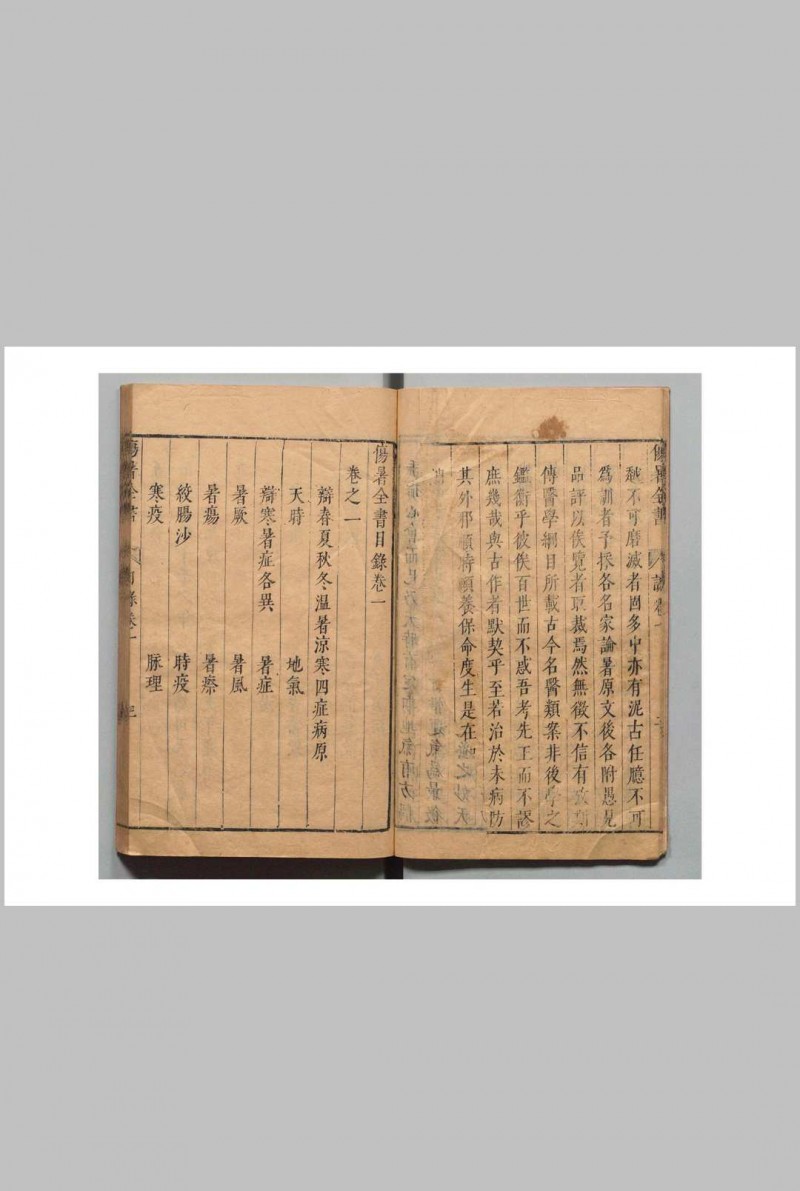 傷暑全書
讀卷一
越不可磨滅者固多中亦有泥古任臆不可
為訓者予採各名家論暑原文後各附愚見
品評以俟覽者取裁焉然無徵不信有
傳醫學綱目所載古今名醫類案非後學之
鑑衡乎彼俟百世而不惑吾考先王而不謬
庶幾哉與古作者默契乎至若治於未病防
其外邪順時頤養保命度生是在
傷暑全書目錄卷一
卷之一
辯春夏秋冬溫暑涼寒四症病原
天時 地氣
辯寒暑症各異 暑症
暑厥 暑風
暑瘍 暑瘵
絞腸沙 時疫
寒疫 脈理
傷暑全書 目錄卷一 三